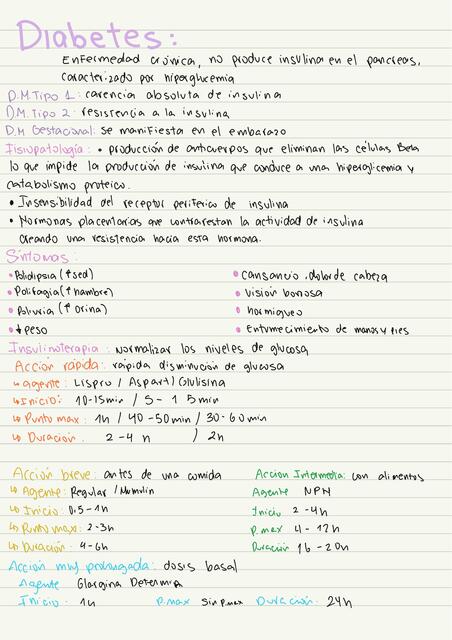 Diabetes:
Enfermedad crónica, no produce insulina en el pancreas,
caracterizado por hiperglucemia
D.M.Tipo 1: carencia absoluta de insulina
D.M.Tipo 2: resistencia a la insulina
D.M Gestacional: Se manifiesta en el embarazo
Fisiopatología: • producción de anticuerpos que eliminan las células Beta
lo que impide la producción de insulina que conduce a una hiperglicemia y
catabolismo proteico.
• Insensibilidad del receptor periferico de insulina
• Hormonas placentarias que contrarestan la actividad de insulina
creando una resistencia hacia esta hormona.
Síntomas:
• Polidipsia (↑sed)
• Cansancio, dolor de cabeza
• Polifagia (↑hambre)
• Visión borrosa
• Poliuria (↑ orina)
• hormigueo
• ↓peso
• Entumecimiento de manos y pies
Insulinoterapia: normalizar los niveles de glucosa
Acción rápida: rápida disminución de glucosa
↳ agente: Lispro / Aspart / Glulisina
↳ Inicio: 10-15min / 5-15min
↳ Punto max: 1h / 40-50min / 30-60min
↳ Duración: 2-4 h / 2h
Acción breve: antes de una comida
Acción Intermedia: con alimentos
↳ Agente: Regular / Humulin
Agente NPH
↳ Inicio: 0.5-1h
Inicio 2-4h
↳ Punto max: 2-3h
P.max 4-12h
↳ Duración: 4-6h
Duración 16-20h
Acción muy prolongada: dosis basal
Agente Glargina Determir
Inicio: 1h P.max Sin p.max Duración: 24h